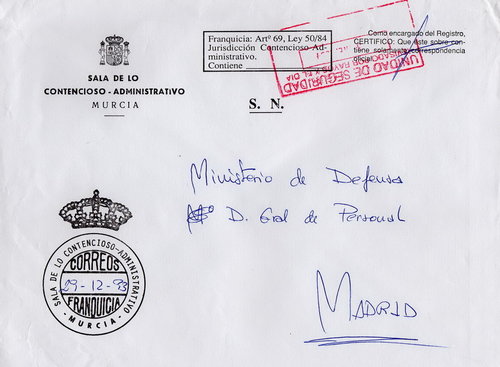 SALA DE LO
CONTENCIOSO - ADMINISTRATIVO
MURCIA
Franquicia: Artº 69, Ley 50/84
Jurisdicción Contencioso-Ad-
ministrativo.
Contiene
Como encargado del Registro,
CERTIFICO: Que este sobre con-
tiene solamente correspondencia
oficial.
UNIDAD DE SEGURIDAD
RAYOS X EL DIA
S. N.
Ministerio de Defensa
D. Gral de Personal
MADRID
SALA DE LO CONTENCIOSO-ADMINISTRATIVO
CORREOS
29-12-93
FRANQUICIA
- MURCIA -